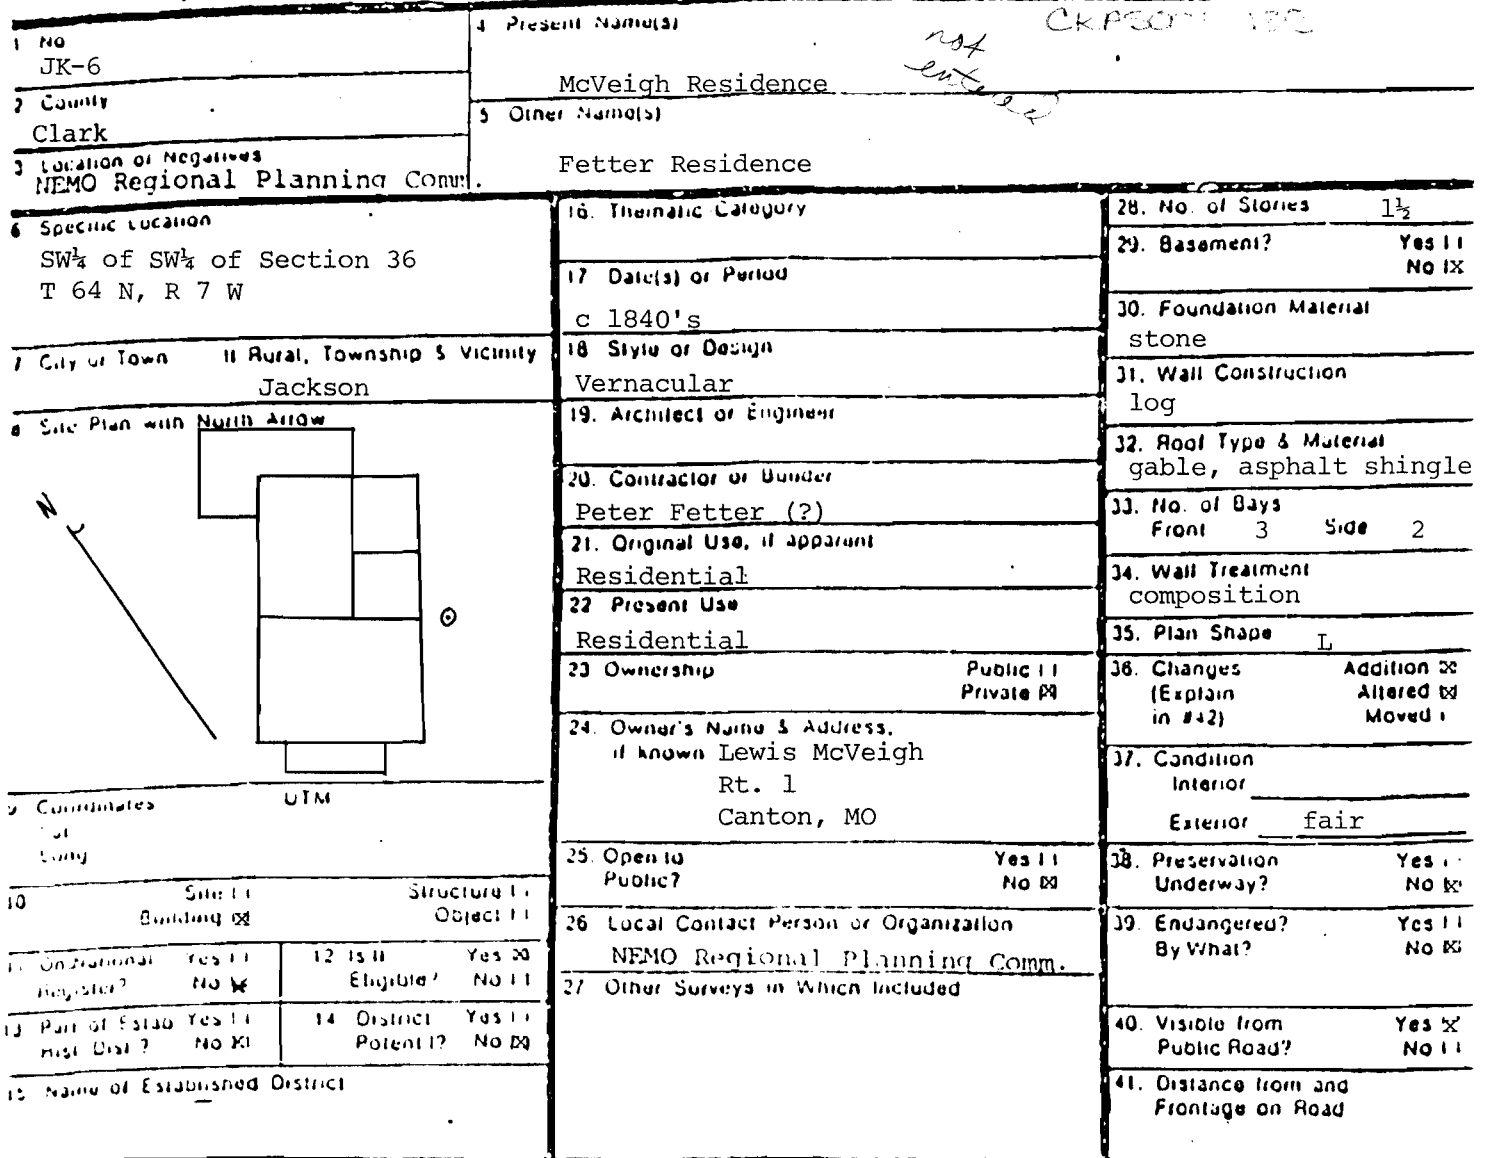 1 No
JK-6
4 Present Name(s)
not
entered
McVeigh Residence
2 County
Clark
5 Other Name(s)
Fetter Residence
3 Location of Negatives
NEMO Regional Planning Comm.
6 Specific Location
SW¼ of SW¼ of Section 36
T 64 N, R 7 W
7 City or Town If Rural, Township & Vicinity
Jackson
8 Site Plan with North Arrow
N
9 Coordinates UTM
Lat
Long
10 Site [ ] Structure [ ]
Building [X] Object [ ]
11 On National Yes [ ]
Register? No [X]
12 Is It Yes [X]
Eligible? No [ ]
13 Part of Estab Yes [ ]
Hist Dist ? No [X]
14 District Yes [ ]
Potent'l? No [X]
15 Name of Established District
16. Thematic Category
17 Date(s) or Period
c 1840's
18 Style or Design
Vernacular
19. Architect or Engineer
20. Contractor or Builder
Peter Fetter (?)
21. Original Use, if apparent
Residential
22 Present Use
Residential
23 Ownership Public [ ]
Private [X]
24. Owner's Name & Address,
if known Lewis McVeigh
Rt. 1
Canton, MO
25. Open to Yes [ ]
Public? No [X]
26 Local Contact Person or Organization
NEMO Regional Planning Comm.
27 Other Surveys in Which Included
28. No. of Stories 1½
29. Basement? Yes [ ]
No [X]
30. Foundation Material
stone
31. Wall Construction
log
32. Roof Type & Material
gable, asphalt shingle
33. No. of Bays
Front 3 Side 2
34. Wall Treatment
composition
35. Plan Shape L
36. Changes Addition [X]
(Explain Altered [X]
in #42) Moved [ ]
37. Condition
Interior
Exterior fair
38. Preservation Yes [ ]
Underway? No [X]
39. Endangered? Yes [ ]
By What? No [X]
40. Visible from Yes [X]
Public Road? No [ ]
41. Distance from and
Frontage on Road